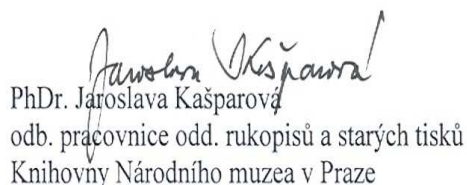 Jaroslava Kašparová
PhDr. Jaroslava Kašparová
odb. pracovnice odd. rukopisů a starých tisků
Knihovny Národního muzea v Praze